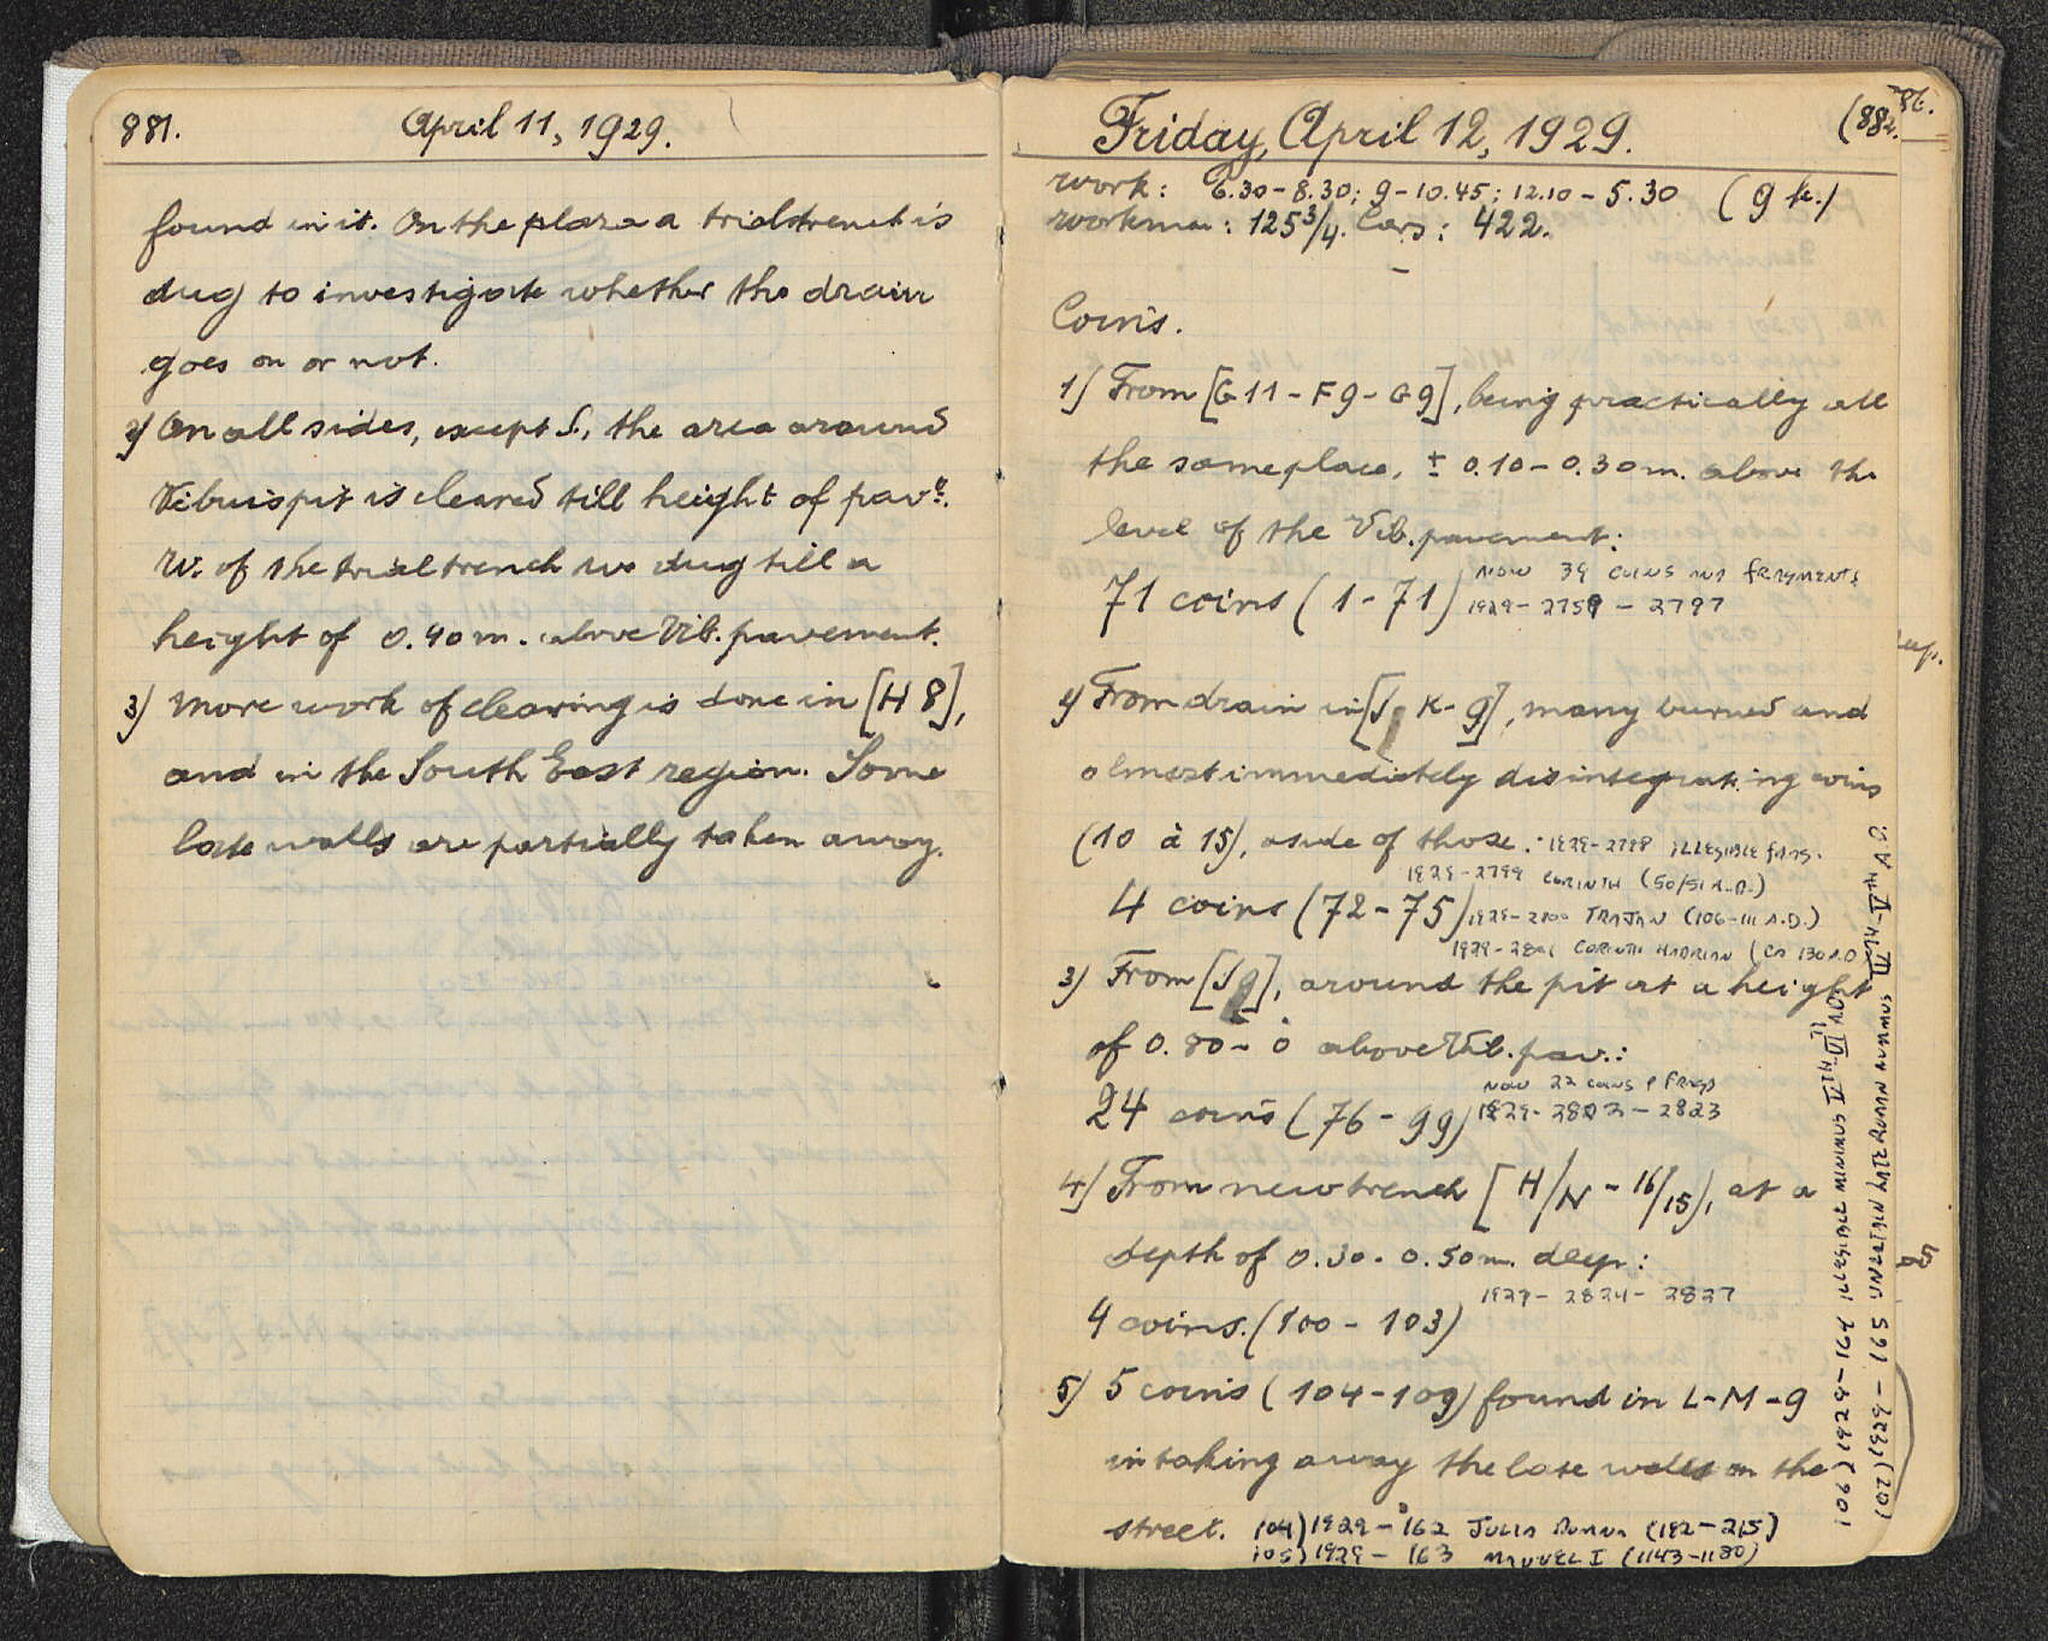 881.
April 11, 1929.
found in it. On the plaza a trial trench is
dug to investigate whether the drain
goes on or not.
2) On all sides, except S., the area around
Vibuispit is cleared till height of pavt.
W. of the trial trench we dug till a
height of 0.40 m. above Vib. pavement.
3) More work of clearing is done in [H 8],
and in the South East region. Some
late walls are partially taken away.
Friday, April 12, 1929.
(882.
work: 6.30-8.30; 9-10.45; 12.10-5.30 (9 )
workmen: 125 3/4. Cars: 422.
Coins.
1) From [G 11 - F9 - G9], being practically all
the same place, ± 0.10-0.30 m. above the
level of the Vib. pavement:
71 coins (1-71)
NOW 39 COINS AND FRAGMENTS
1929-2759-2797
2) From drain in [J, K-9], many burned and
almost immediately disintegrating coins
(10 à 15), aside of those:
1929-2798 ILLEGIBLE FRAGS.
1929-2799 CORINTH (50/51 A.D.)
4 coins (72-75)
1929-2800 TRAJAN (106-111 A.D.)
1929-2801 CORINTH HADRIAN (CA 130 A.D
3) From [J9], around the pit at a height
of 0.80-0 above Vib. pav.:
NOW 22 COINS & FRAGS
24 coins (76-99)
1929-2802-2823
4) From new trench [H/N - 16/15], at a
depth of 0.30-0.50 m. deep:
1929-2824-2827
4 coins. (100-103)
5) 5 coins (104-109) found in L-M-9
in taking away the late walls on the
street.
104) 1929-162 JULIA DOMNA (192-215)
105) 1929-163 MANUEL I (1143-1180)
106) 1929-164 ILLEGIBLE MINIMUS VTH-VI ADS
107) 1929-165 UNCERTAIN LATE ROMAN NUMMUS IVTH-VTH A.D